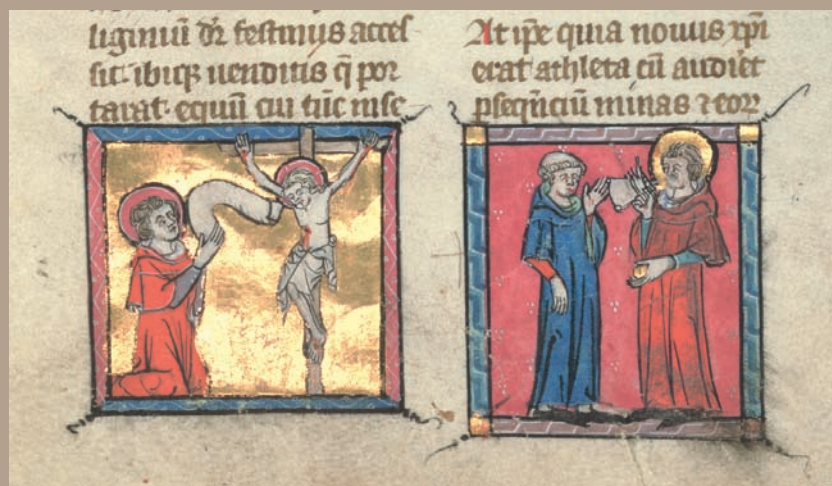 liginiū dr̄ festinus acces
sit. ibiq; uenditis q̄ por
tarat. equū cui tūc inse
At ip̄e quia nouus xp̄i
erat athleta cū audiēt
p̄seq̄nciū minas ⁊ eoꝝ